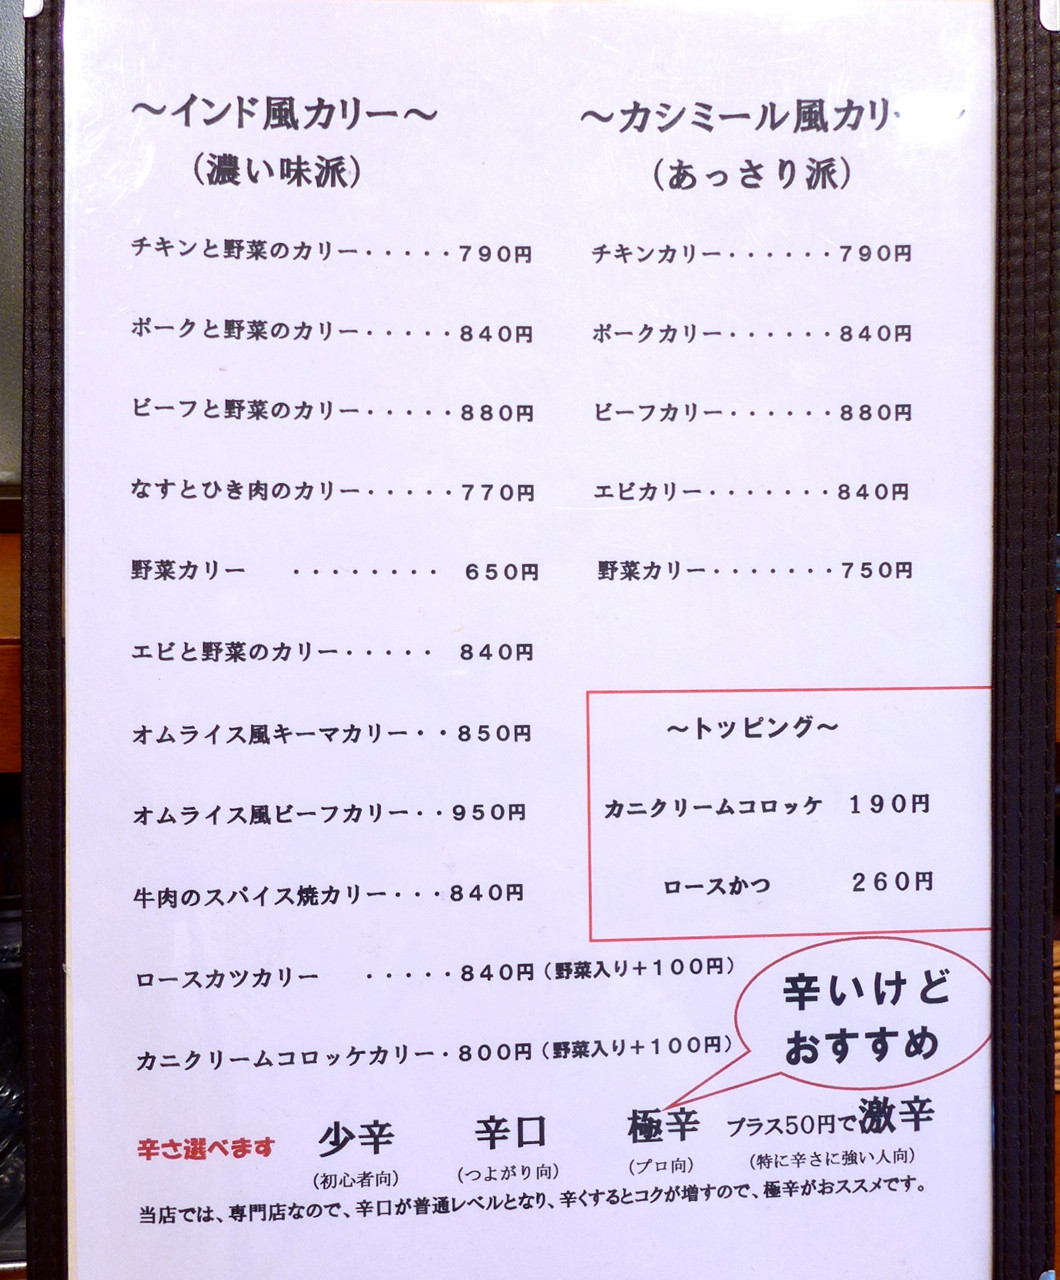 ～インド風カリー～
（濃い味派）
チキンと野菜のカリー・・・・・７９０円
ポークと野菜のカリー・・・・・８４０円
ビーフと野菜のカリー・・・・・８８０円
なすとひき肉のカリー・・・・・７７０円
野菜カリー　・・・・・・・・　６５０円
エビと野菜のカリー・・・・・　８４０円
オムライス風キーマカリー・・８５０円
オムライス風ビーフカリー・・９５０円
牛肉のスパイス焼カリー・・・８４０円
ロースカツカリー　・・・・・８４０円（野菜入り＋１００円）
カニクリームコロッケカリー・８００円（野菜入り＋１００円）
～カシミール風カリ
（あっさり派）
チキンカリー・・・・・・７９０円
ポークカリー・・・・・・８４０円
ビーフカリー・・・・・・８８０円
エビカリー・・・・・・・８４０円
野菜カリー・・・・・・・７５０円
～トッピング～
カニクリームコロッケ　１９０円
ロースかつ　２６０円
辛いけど
おすすめ
辛さ選べます　少辛　辛口　極辛　プラス50円で激辛
（初心者向）　（つよがり向）　（プロ向）　（特に辛さに強い人向）
当店では、専門店なので、辛口が普通レベルとなり、辛くするとコクが増すので、極辛がおススメです。